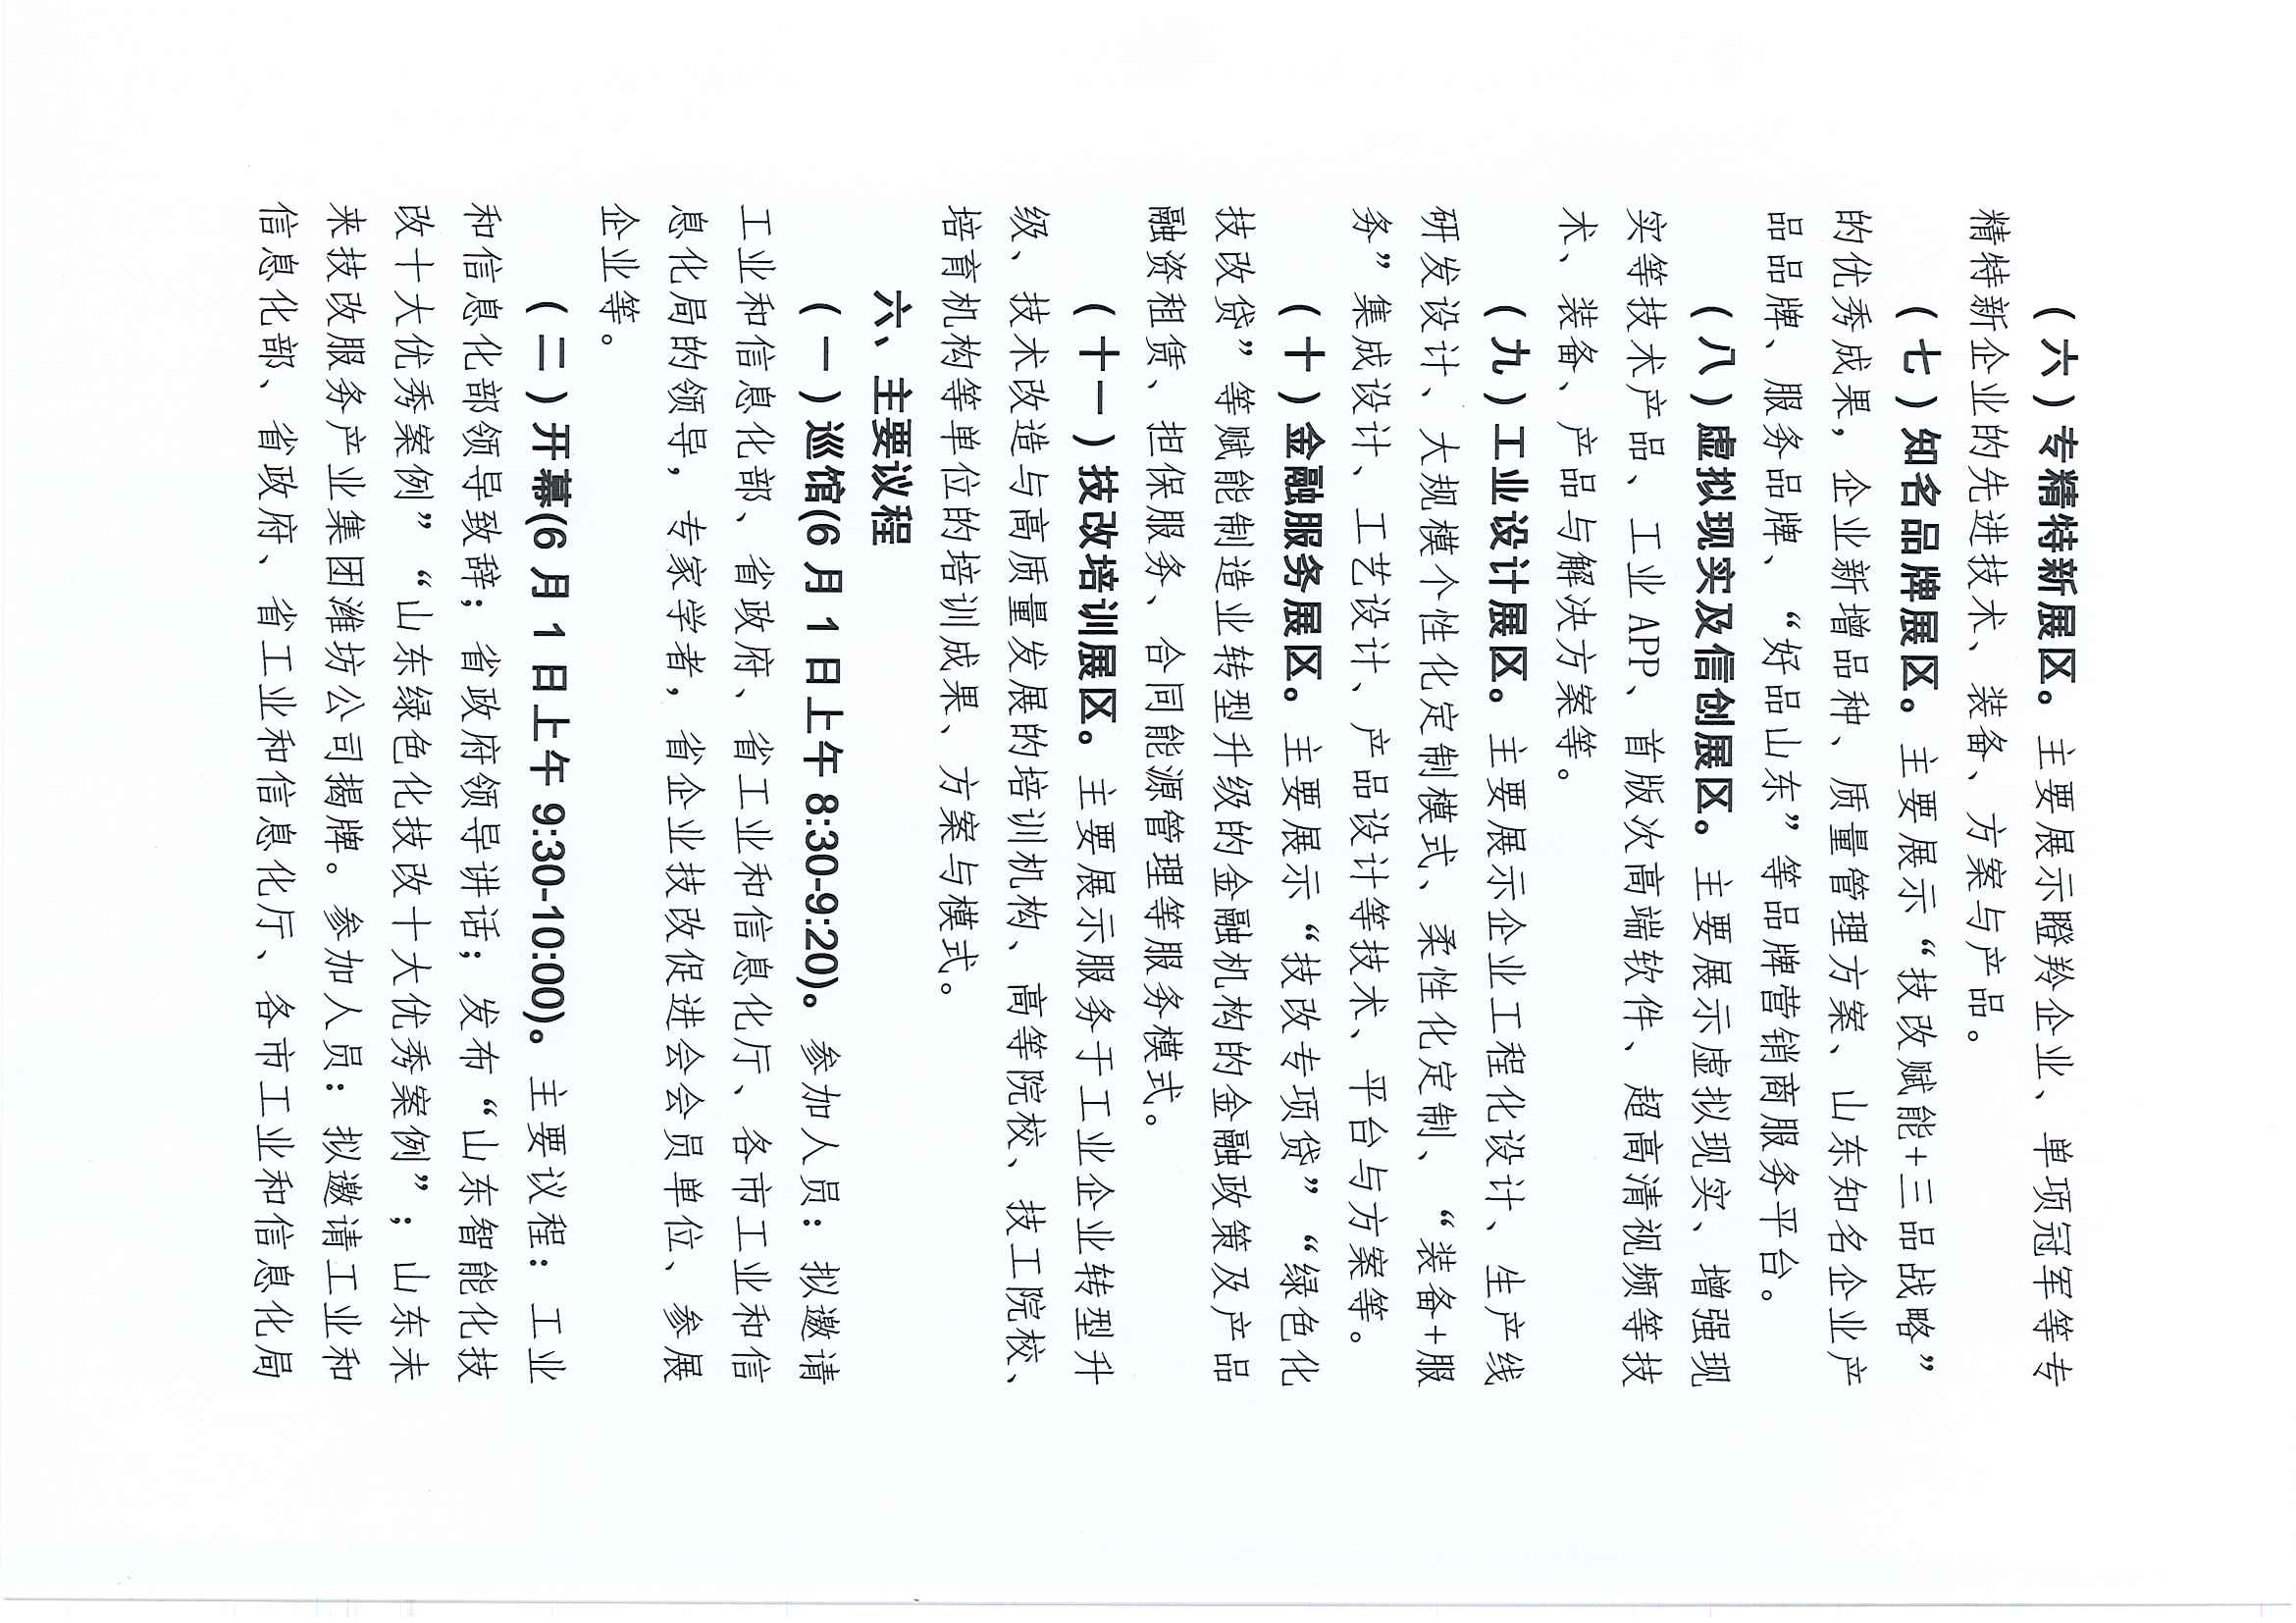 （六）专精特新展区。主要展示瞪羚企业、单项冠军等专
精特新企业的先进技术、装备、方案与产品。
（七）知名品牌展区。主要展示“技改赋能+三品战略”
的优秀成果，企业新增品种、质量管理方案、山东知名企业产
品品牌、服务品牌、“好品山东”等品牌营销商服务平台。
（八）虚拟现实及信创展区。主要展示虚拟现实、增强现
实等技术产品、工业APP、首版次高端软件、超高清视频等技
术、装备、产品与解决方案等。
（九）工业设计展区。主要展示企业工程化设计、生产线
研发设计、大规模个性化定制模式、柔性化定制、“装备+服
务”集成设计、工艺设计、产品设计等技术、平台与方案等。
（十）金融服务展区。主要展示“技改专项贷”“绿色化
技改贷”等赋能制造业转型升级的金融机构的金融政策及产品
融资租赁、担保服务、合同能源管理等服务模式。
（十一）技改培训展区。主要展示服务于工业企业转型升
级、技术改造与高质量发展的培训机构、高等院校、技工院校、
培育机构等单位的培训成果、方案与模式。
六、主要议程
（一）巡馆(6月1日上午8:30-9:20)。参加人员：拟邀请
工业和信息化部、省政府、省工业和信息化厅、各市工业和信
息化局的领导，专家学者，省企业技改促进会会员单位、参展
企业等。
（二）开幕(6月1日上午9:30-10:00)。主要议程：工业
和信息化部领导致辞；省政府领导讲话；发布“山东智能化技
改十大优秀案例”“山东绿色化技改十大优秀案例”；山东未
来技改服务产业集团潍坊公司揭牌。参加人员：拟邀请工业和
信息化部、省政府、省工业和信息化厅、各市工业和信息化局